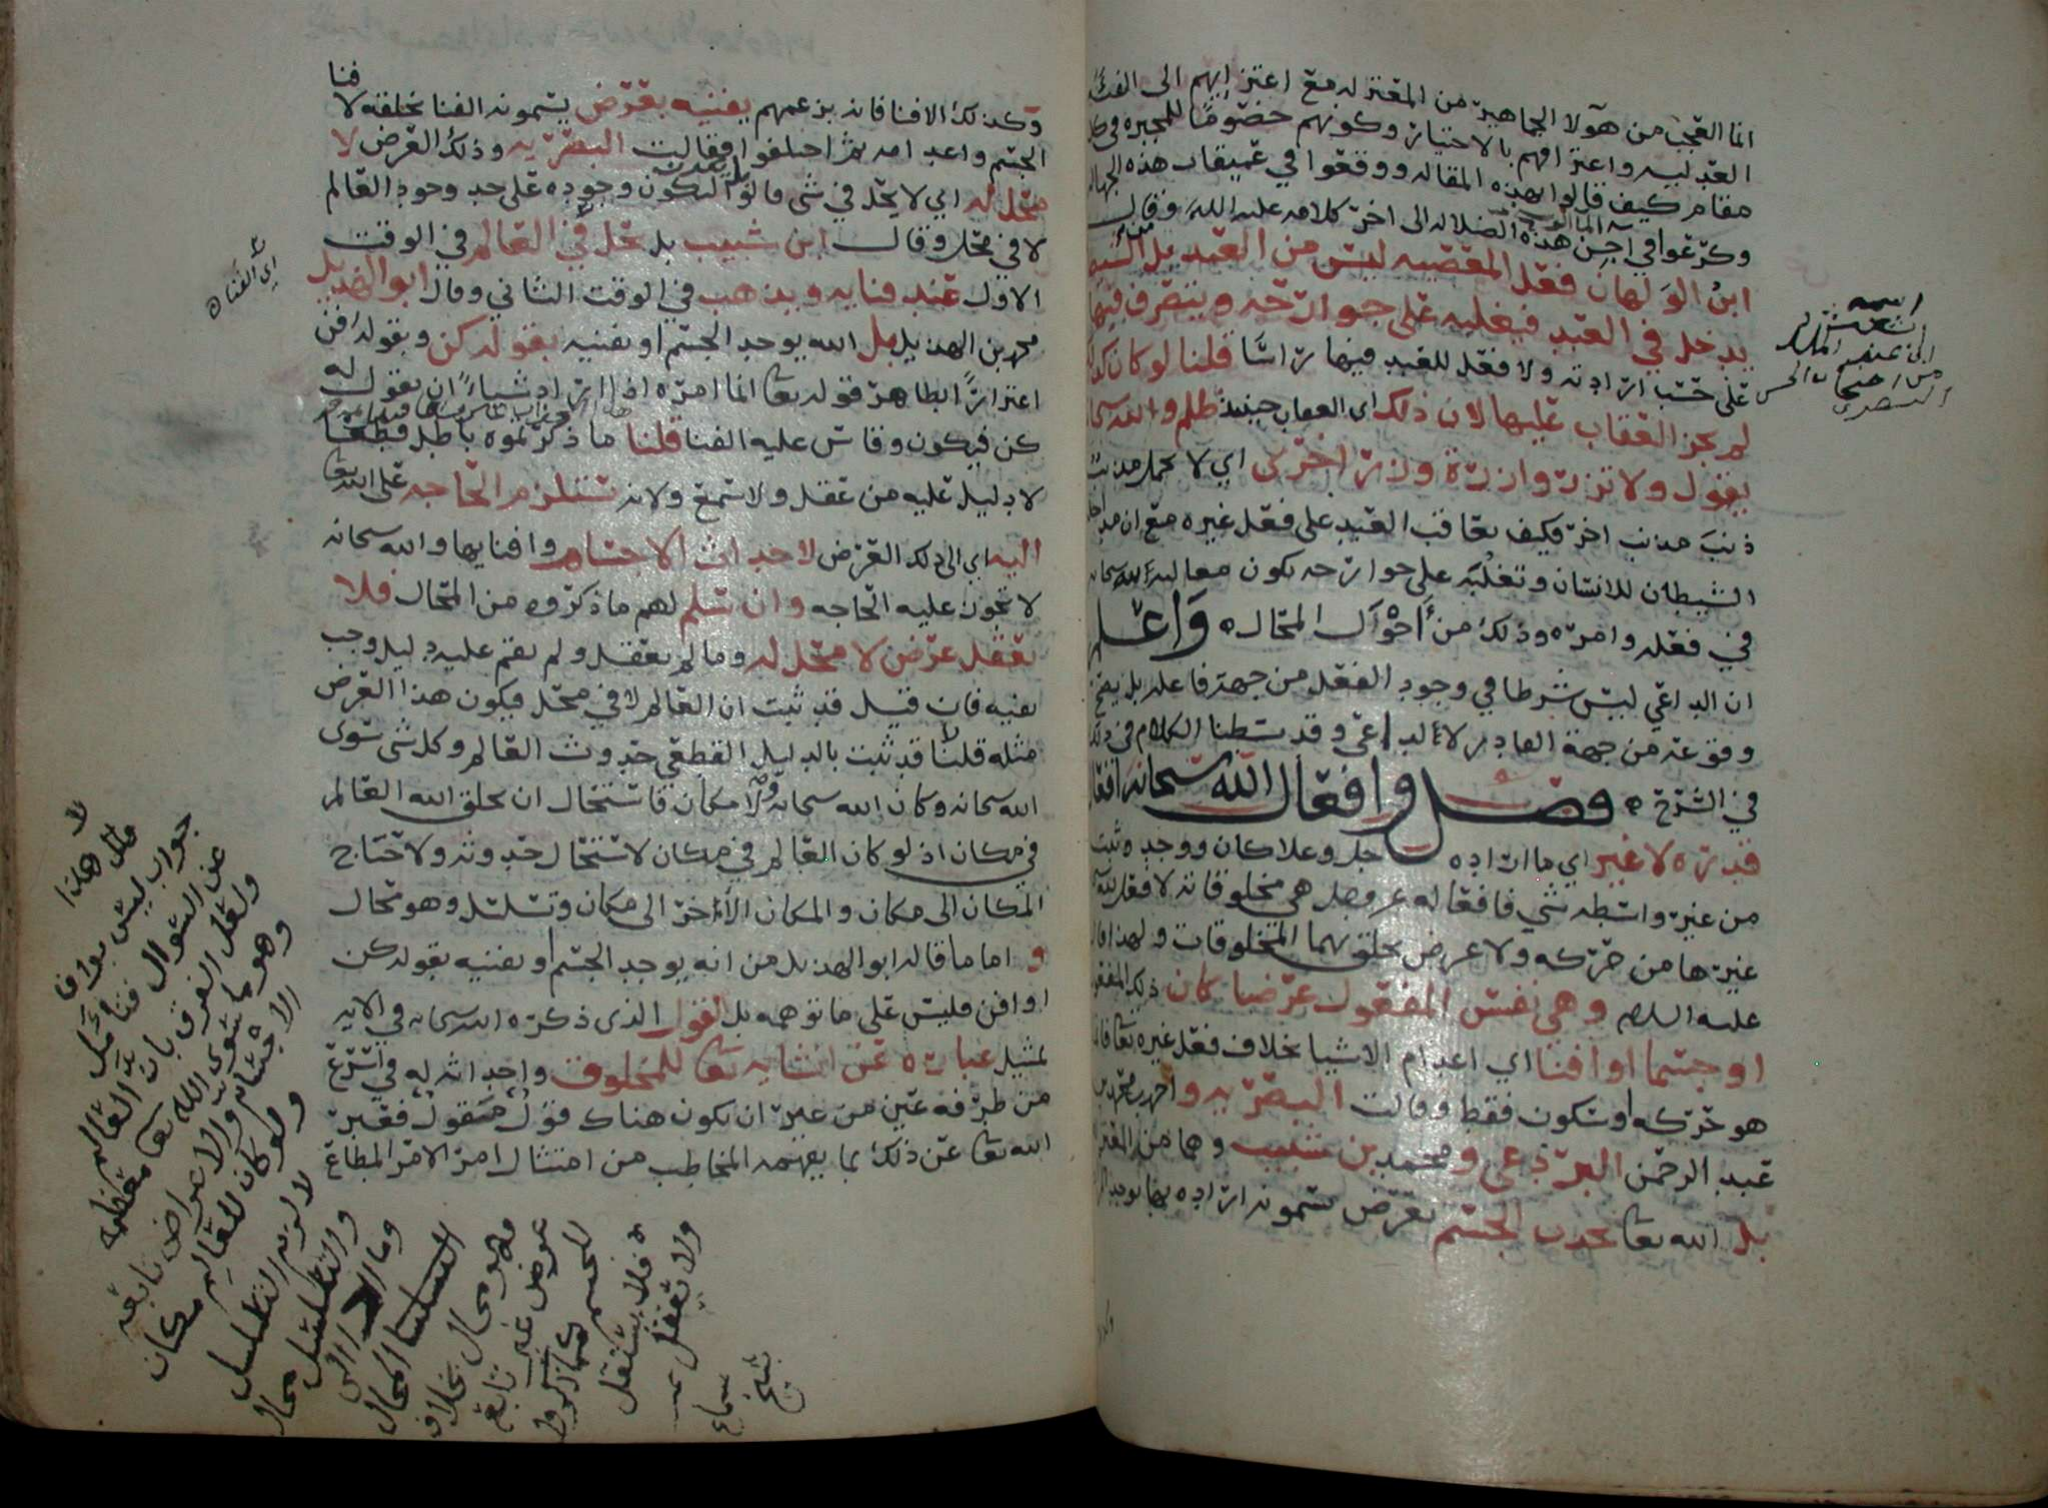 انما العجب من هولا الجماهير من المعتزله مع اعتزايهم الى الفئة
العدليه واعترافهم بالاختيار وكونهم خصوما للمجبره في كل
مقام كيف قالوا بهذه المقاله ووقعوا في عميقات هذه الجهاله
وكرعوا في اجن هذه الضلاله الى اخر كلامه عليه السلم وقال
ابن الولهان فعل المعصيه ليس من العبد بل الشيطان
يدخل في العبد فيغلبه على جوارحه ويتصرف فيها
على حسب ارادته ولا فعل للعبد فيها راسا قلنا لو كان كذلك
لم يجز العقاب عليها لان ذلك اي العقاب حينيذ ظلم والله سبحانه
يقول ولا تزر وازرة وزر اخرى اي لا يحمل مذنب
ذنب مذنب اخر فكيف يعاقب العبد على فعل غيره مع ان مداخلة
الشيطان للانسان وتغلبه على جوارحه يكون مغالبه لله سبحانه
في فعله وامره وذلك من احوال المحال واعلم
ان الداعي ليس شرطا في وجود الفعل من جهة فاعله بل يصح
وقوعه من جهة القادر لا لداعي وقد بسطنا الكلام في ذلك
في الشرح فصل وافعال الله سبحانه افعال
قدره لا غير اي ما اراده جل وعلا كان ووجد وثبت
من غير واسطه شي فافعاله عز وجل هي مخلوقاته لا فعل له
غيرها من حركه ولا عرض يخلق بهما المخلوقات ولهذا قال
عليه السلام وهي نفس المفعول عرضا كان ذلك المفعول
او جسما او افنا اي اعدام الاشيا بخلاف فعل غيره تعالى فانما
هو حركه او سكون فقط وقالت البصريه واحمد بن محمد بن
عبد الرحمن البرذعي ومحمد بن شبيب وهما من المعتزله
بل الله تعالى يحدث الجسم بعرض يسمونه اراده بها يوجد
اسمه
من اصحاب الحسن
البصري
وكذلك الافنا فانه بزعمهم يفنيه بعرض يسمونه الفنا يخلقه لافنا
الجسم واعدامه ثم اختلفوا فقالت البصريه وذلك العرض لا
محل له اي لا يحل في شي قالوا ليكون وجوده على حد وجود العالم
لا في محل وقال ابن شبيب بل يحل في العالم في الوقت
الاول عند فنايه ويذهب في الوقت الثاني وقال ابو الهذيل
محمد بن الهذيل بل الله يوجد الجسم او يفنيه بقوله كن وبقوله افن
اغترارا بظاهر قوله تعالى انما امره اذا اراد شيا ان يقول له
كن فيكون وقاس عليه الفنا قلنا ما ذكرتموه باطل قطعا
لا دليل عليه من عقل ولا سمع ولانه تستلزم الحاجه على الله تعالى
اليه اي الى ذلك العرض لاحداث الاجسام وافنايها والله سبحانه
لا تجوز عليه الحاجه وان سلم لهم ما ذكروه من المحال فلا
يعقل عرض لا محل له وما لم يعقل ولم يقم عليه دليل وجب
نفيه فان قيل قد ثبت ان العالم لا في محل فيكون هذا العرض
مثله قلنا قد ثبت بالدليل القطعي حدوث العالم وكل شي سوى
الله سبحانه وكان الله سبحانه ولا مكان فاستحال ان يخلق الله العالم
في مكان اذ لو كان العالم في مكان لاستحال حدوثه ولاحتاج
المكان الى مكان والمكان الاخر الى مكان وتسلسل وهو محال
و اما ما قاله ابو الهذيل من انه يوجد الجسم او يفنيه بقوله كن
او افن فليس على ما توهمه بل القول الذي ذكره الله سبحانه في الايه
تمثيل عباره عن انشايه تعالى للمخلوق واحداثه له في اسرع
من طرفة عين من غير ان يكون هناك قول مقول فعبر
الله تعالى عن ذلك بما يفهمه المخاطب من امتثال امر الامر المطاع
اي الفنا
هذا
جواب ليس بواف
عن السوال فتامل
ولعل الفرق بان العالم
وهو ما سوى الله تعالى معظمه
الاجسام والاعراض تابعه
ولو كان للعالم مكان
لا لزم التسلسل
والتسلسل محال
وهو محال بخلاف
عرض غير تابع
للجسم كما ذكروا
فلا يستقل
ولا يعقل
سماع
شيخ